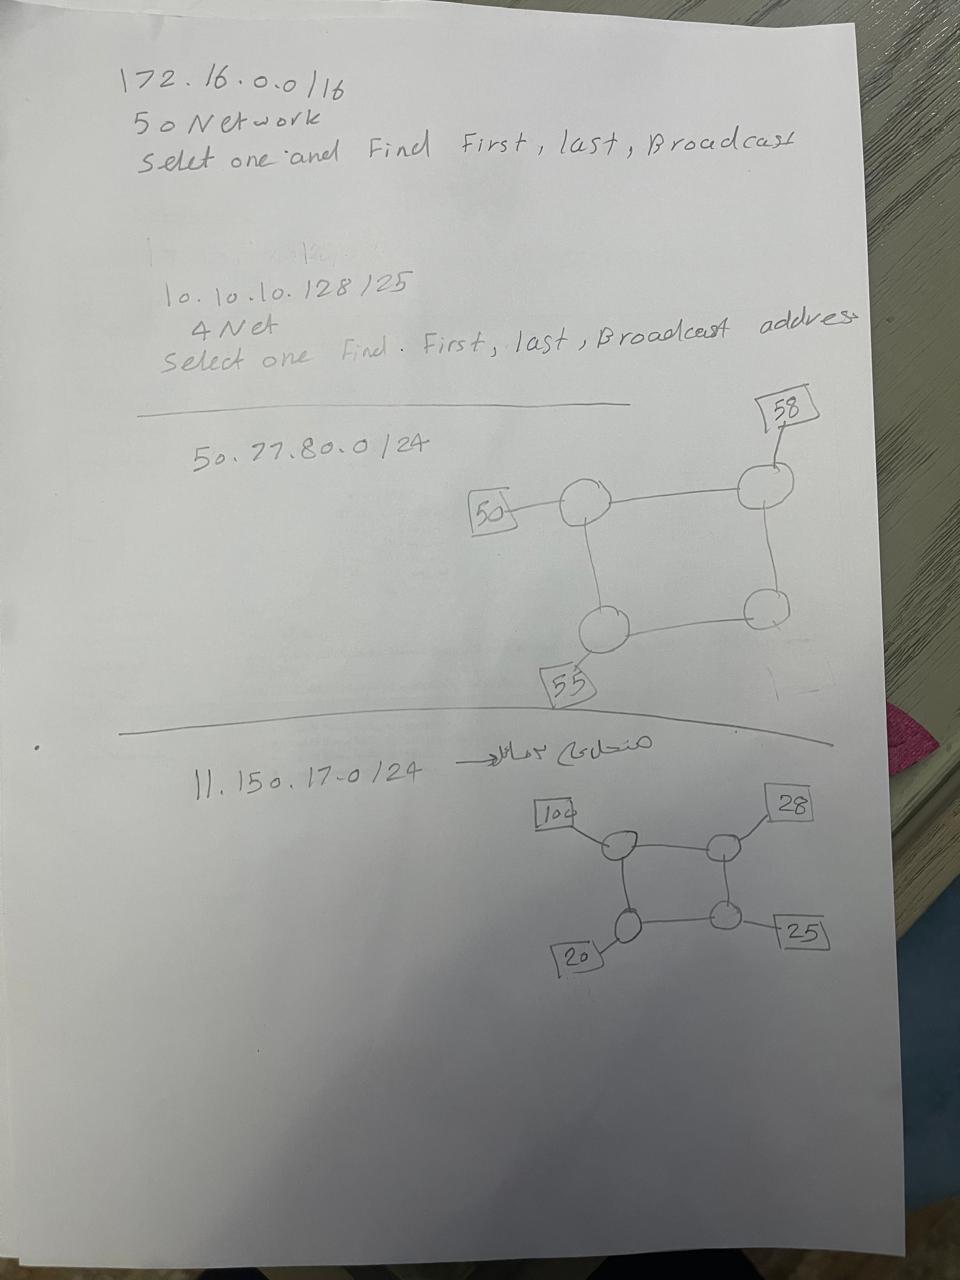 172.16.0.0/16
50 Network
Selet one and Find First, last, Broadcast
10.10.10.128/25
4 Net
Select one Find. First, last, Broadcast address
50.77.80.0/24
58
50
55
11.150.17.0/24
100
28
20
25